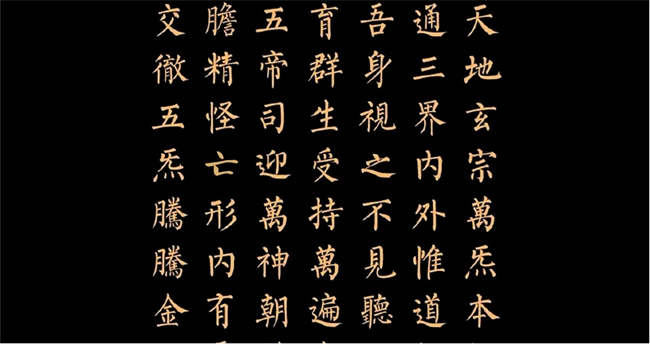 天地玄宗萬炁本
通三界內外惟道
吾身視之不見聽
育群生受持萬遍
五帝司迎萬神朝
膽精怪亡形內有
交徹五炁騰騰金